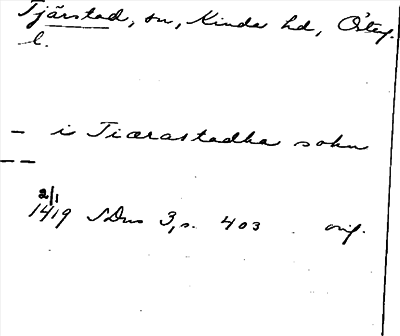 Tjärstad, sn, Kinda hd, Östg.
l.
– i Tiærastadha sokn
– –
2/1
1419 SDns 3, s. 403 orig.